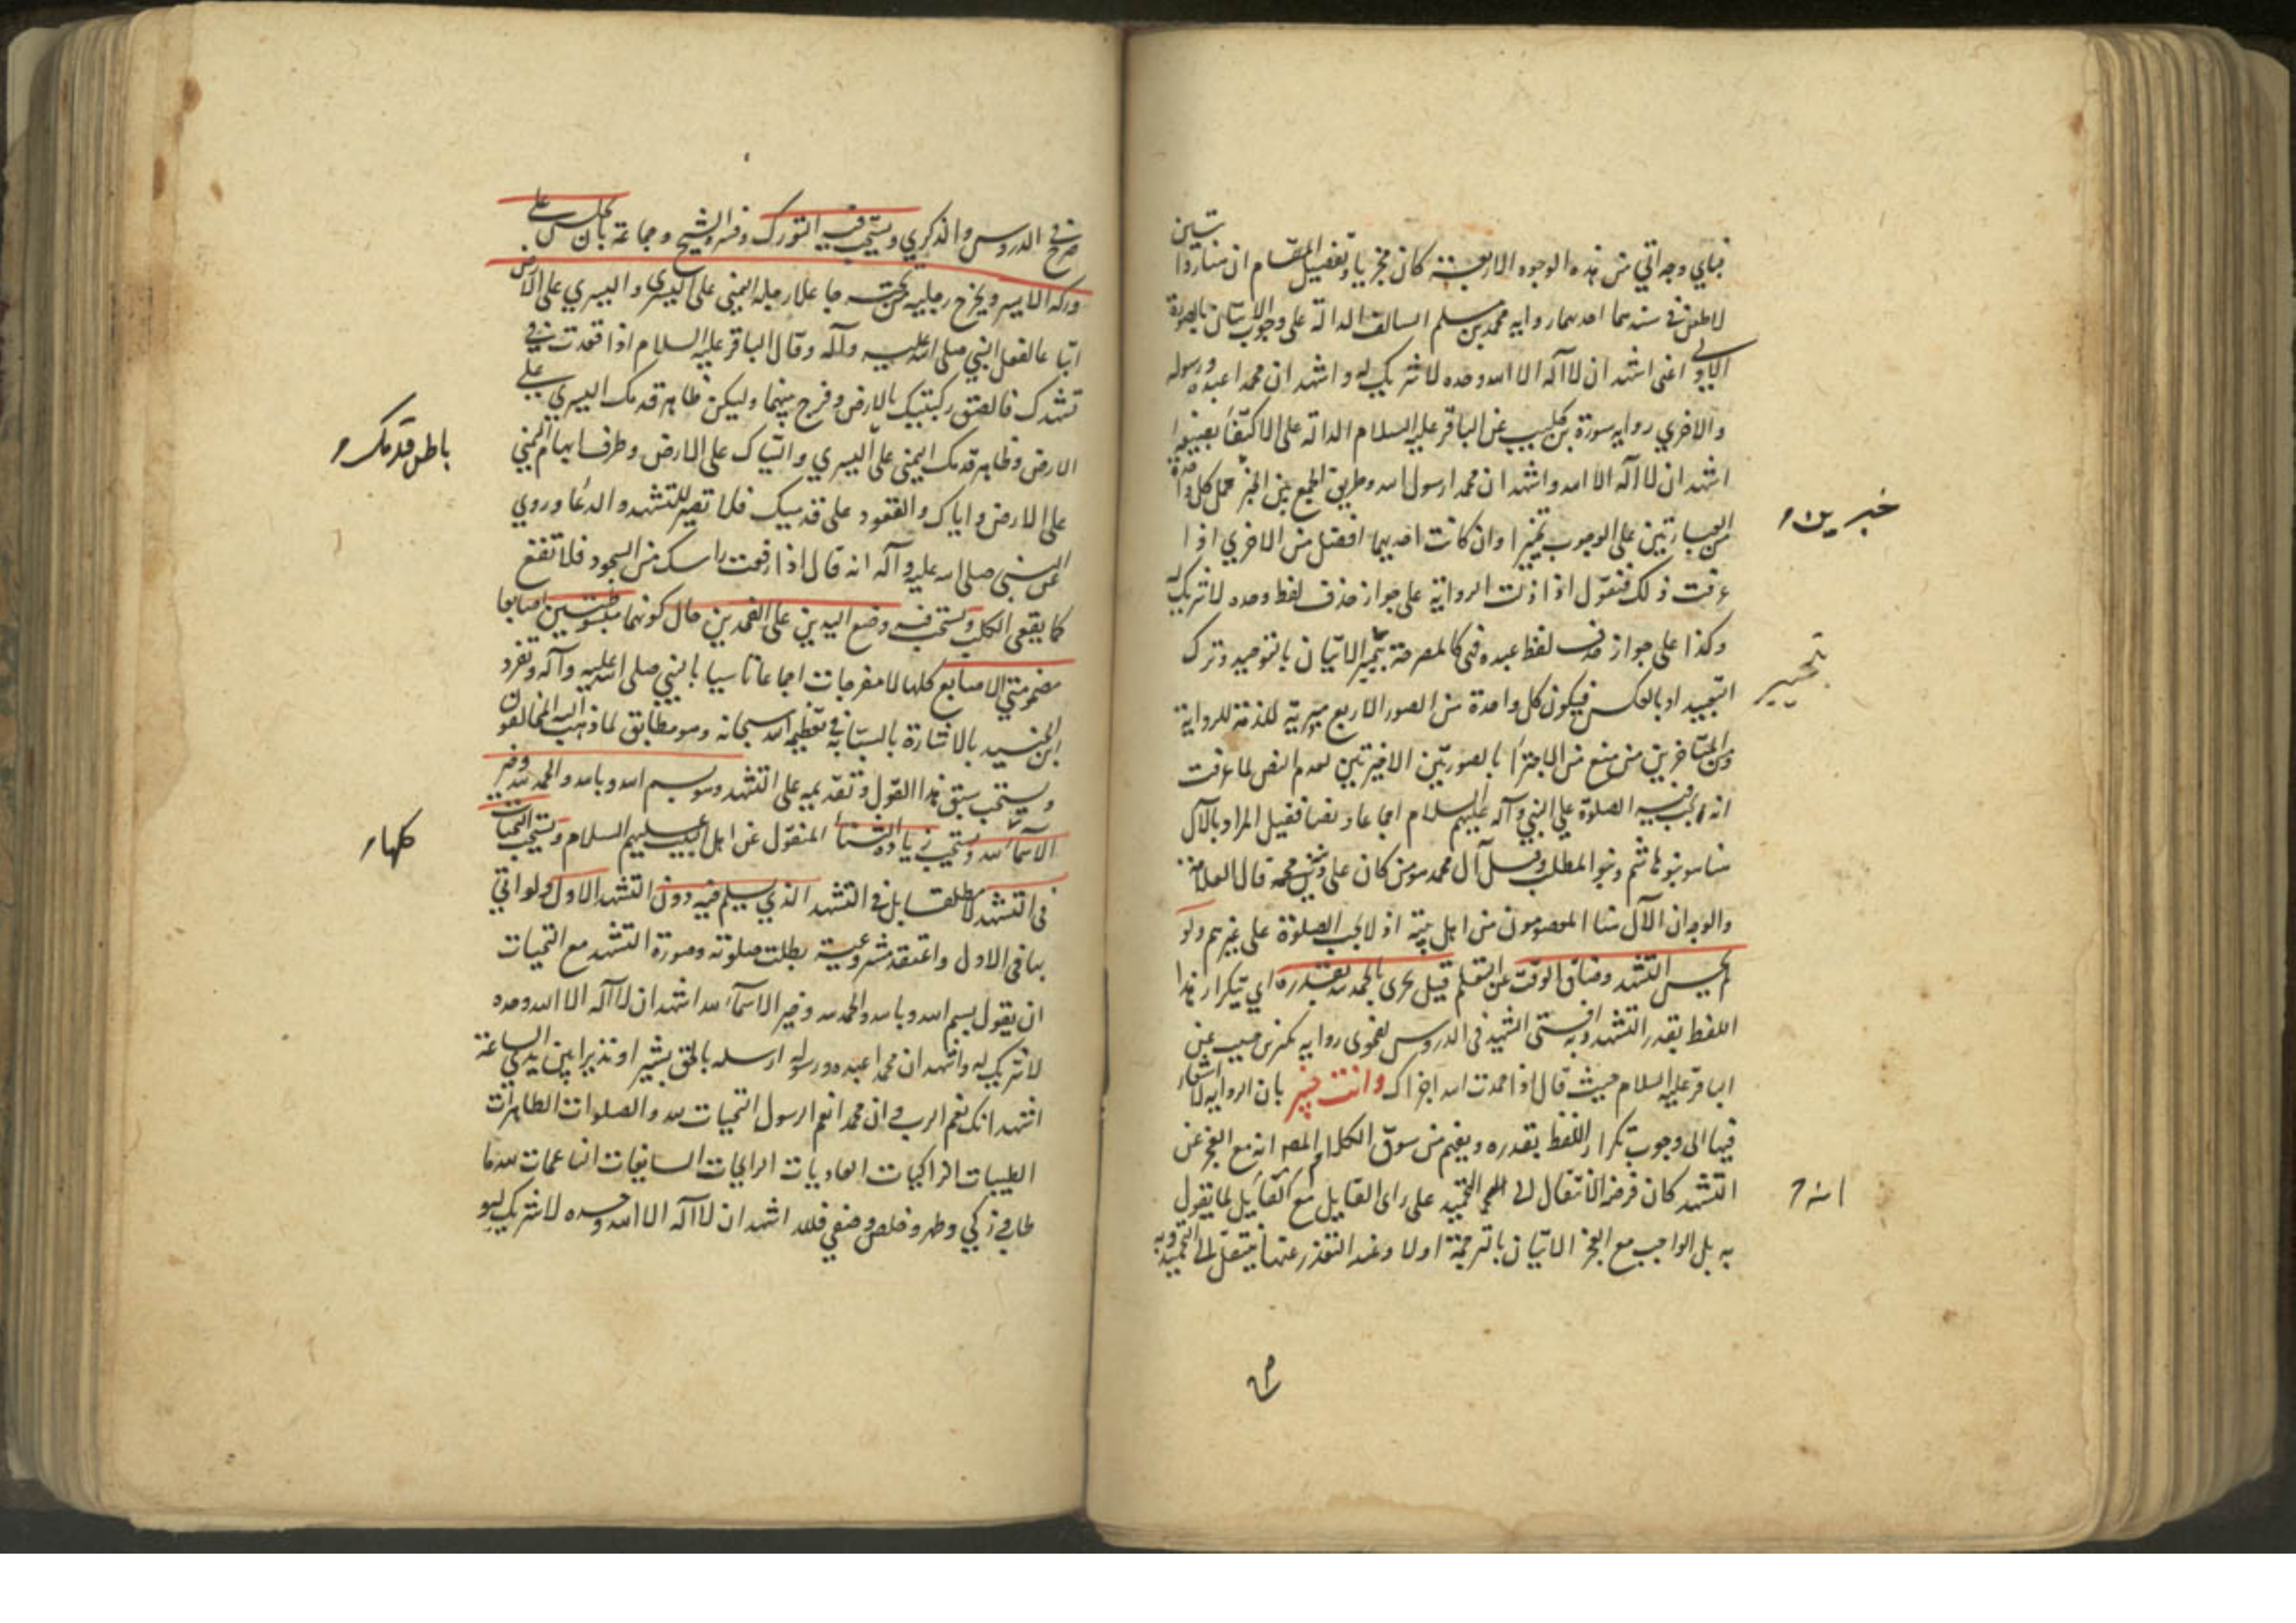 فباي وجه اتي من هذه الوجوه الاربعة كان مجزيا وتفصيل المقام ان هنا روايتين
لا طعن في سندهما احدهما رواية محمد بن مسلم السالفة الدالة على وجوب الاتيان بالصورة
الاولى اعني اشهد ان لا اله الا الله وحده لا شريك له واشهد ان محمدا عبده ورسوله
والاخري رواية سورة بن كليب عن الباقر عليه السلام الدالة على الاكتفاء
اشهد ان لا اله الا الله واشهد ان محمدا رسول الله وطريق الجمع بين الخبر حمل كل واحدة
خبرين
من العبارتين على الوجوب تخييرا وان كانت احديهما افضل من الاخري اذا
عرفت ذلك فنقول اذا دلت الرواية على جواز حذف لفظ وحده لا شريك له
وكذا على جواز حذف لفظ عبده فهي كالمصرحة بتخيير الاتيان بالتوحيد وترك
تخيير
التعبيد او بالعكس فيكون كل واحدة من الصور الاربع مجزية للرواية
ومن المتاخرين من منع من الاجتزاء بالصورتين الاخيرتين لعدم النص لما عرفت
انه يجب فيه الصلوة على النبي وآله عليهم السلام اجماعا ونصا فقيل المراد بالآل
هنا بنو هاشم وبنو المطلب وقيل آل محمد من كان على دين محمد قال العلامة
والوجه ان الآل هنا المعصومون من اهل بيته اذ لا تجب الصلوة على غيرهم ولو
لم يحسن التشهد وضاق الوقت عن التعلم قيل يجزي بالحمد لله بقدره اي بتكرار هذا
اللفظ بقدر التشهد وبه افتى الشهيد في الدروس لفحوى رواية بكر بن حبيب عن
الباقر عليه السلام حيث قال اذا حمدت الله اجزاك وانت خبير بان الرواية لا اشعار
فيها الى وجوب تكرار اللفظ بقدره ويفهم من سوق الكلام المصـ انه مع العجز عن
التشهد كان فرضه الانتقال الى التحميد على راي القايل مع ان القايل لما يقول
انه
به بل الواجب مع العجز الاتيان بالترجمة اولا وعند التعذر عنها ينتقل الى التحميد وبه
صرح في الدروس والذكري ويستحب فيه التورك وفسره الشيخ وجماعة بان يجلس على
وركه الايسر ويخرج رجليه من تحته جاعلا رجله اليمنى على اليسرى واليسري على الارض
اتباعا لفعل النبي صلى الله عليه وآله وقال الباقر عليه السلام اذا قعدت في
تشهدك فالصق ركبتيك بالارض وفرج بينهما وليكن ظاهر قدمك اليسري على
الارض وظاهر قدمك اليمنى على اليسري والتياك على الارض وطرف ابهام اليمني
باطن قدمك
على الارض واياك والقعود على قدميك فلا تصبر للتشهد والدعا وروي
عن النبي صلى الله عليه وآله انه قال اذا رفعت راسك من السجود فلا تقع
كما يقعي الكلب ويستحب فيه وضع اليدين على الفخذين حال كونهما مبسوطتين اصابعها
مضمومتي الاصابع كلها لا مفرجات اجماعا تاسيا بالنبي صلى الله عليه وآله وتفرد
ابن الجنيد بالاشارة بالسبابة في تعظيم الله سبحانه وهو مطابق لما ذهب اليه المخالفون
ويستحب سبق هذا القول وتقديمه على التشهد وهو بسم الله وبالله والحمد لله وخير
الاسماء لله ويستحب زيادة الثنا المنقول عن اهل البيت عليهم السلام ويستحب التحيات
كلها
في التشهد لا مطلقا بل في التشهد الذي يسلم فيه دون التشهد الاول ولو اتي
بها في الاول واعتقد مشروعيته بطلت صلوته وصورة التشهد مع التحيات
ان يقول بسم الله وبالله والحمد لله وخير الاسماء لله اشهد ان لا اله الا الله وحده
لا شريك له واشهد ان محمدا عبده ورسوله ارسله بالحق بشيرا ونذيرا بين يدي الساعة
اشهد انك نعم الرب وان محمدا نعم الرسول التحيات لله والصلوات الطاهرات
الطيبات الزاكيات الغاديات الرايحات السابغات الناعمات لله ما
طاب وزكي وطهر وخلص وصفي فلله اشهد ان لا اله الا الله وحده لا شريك له